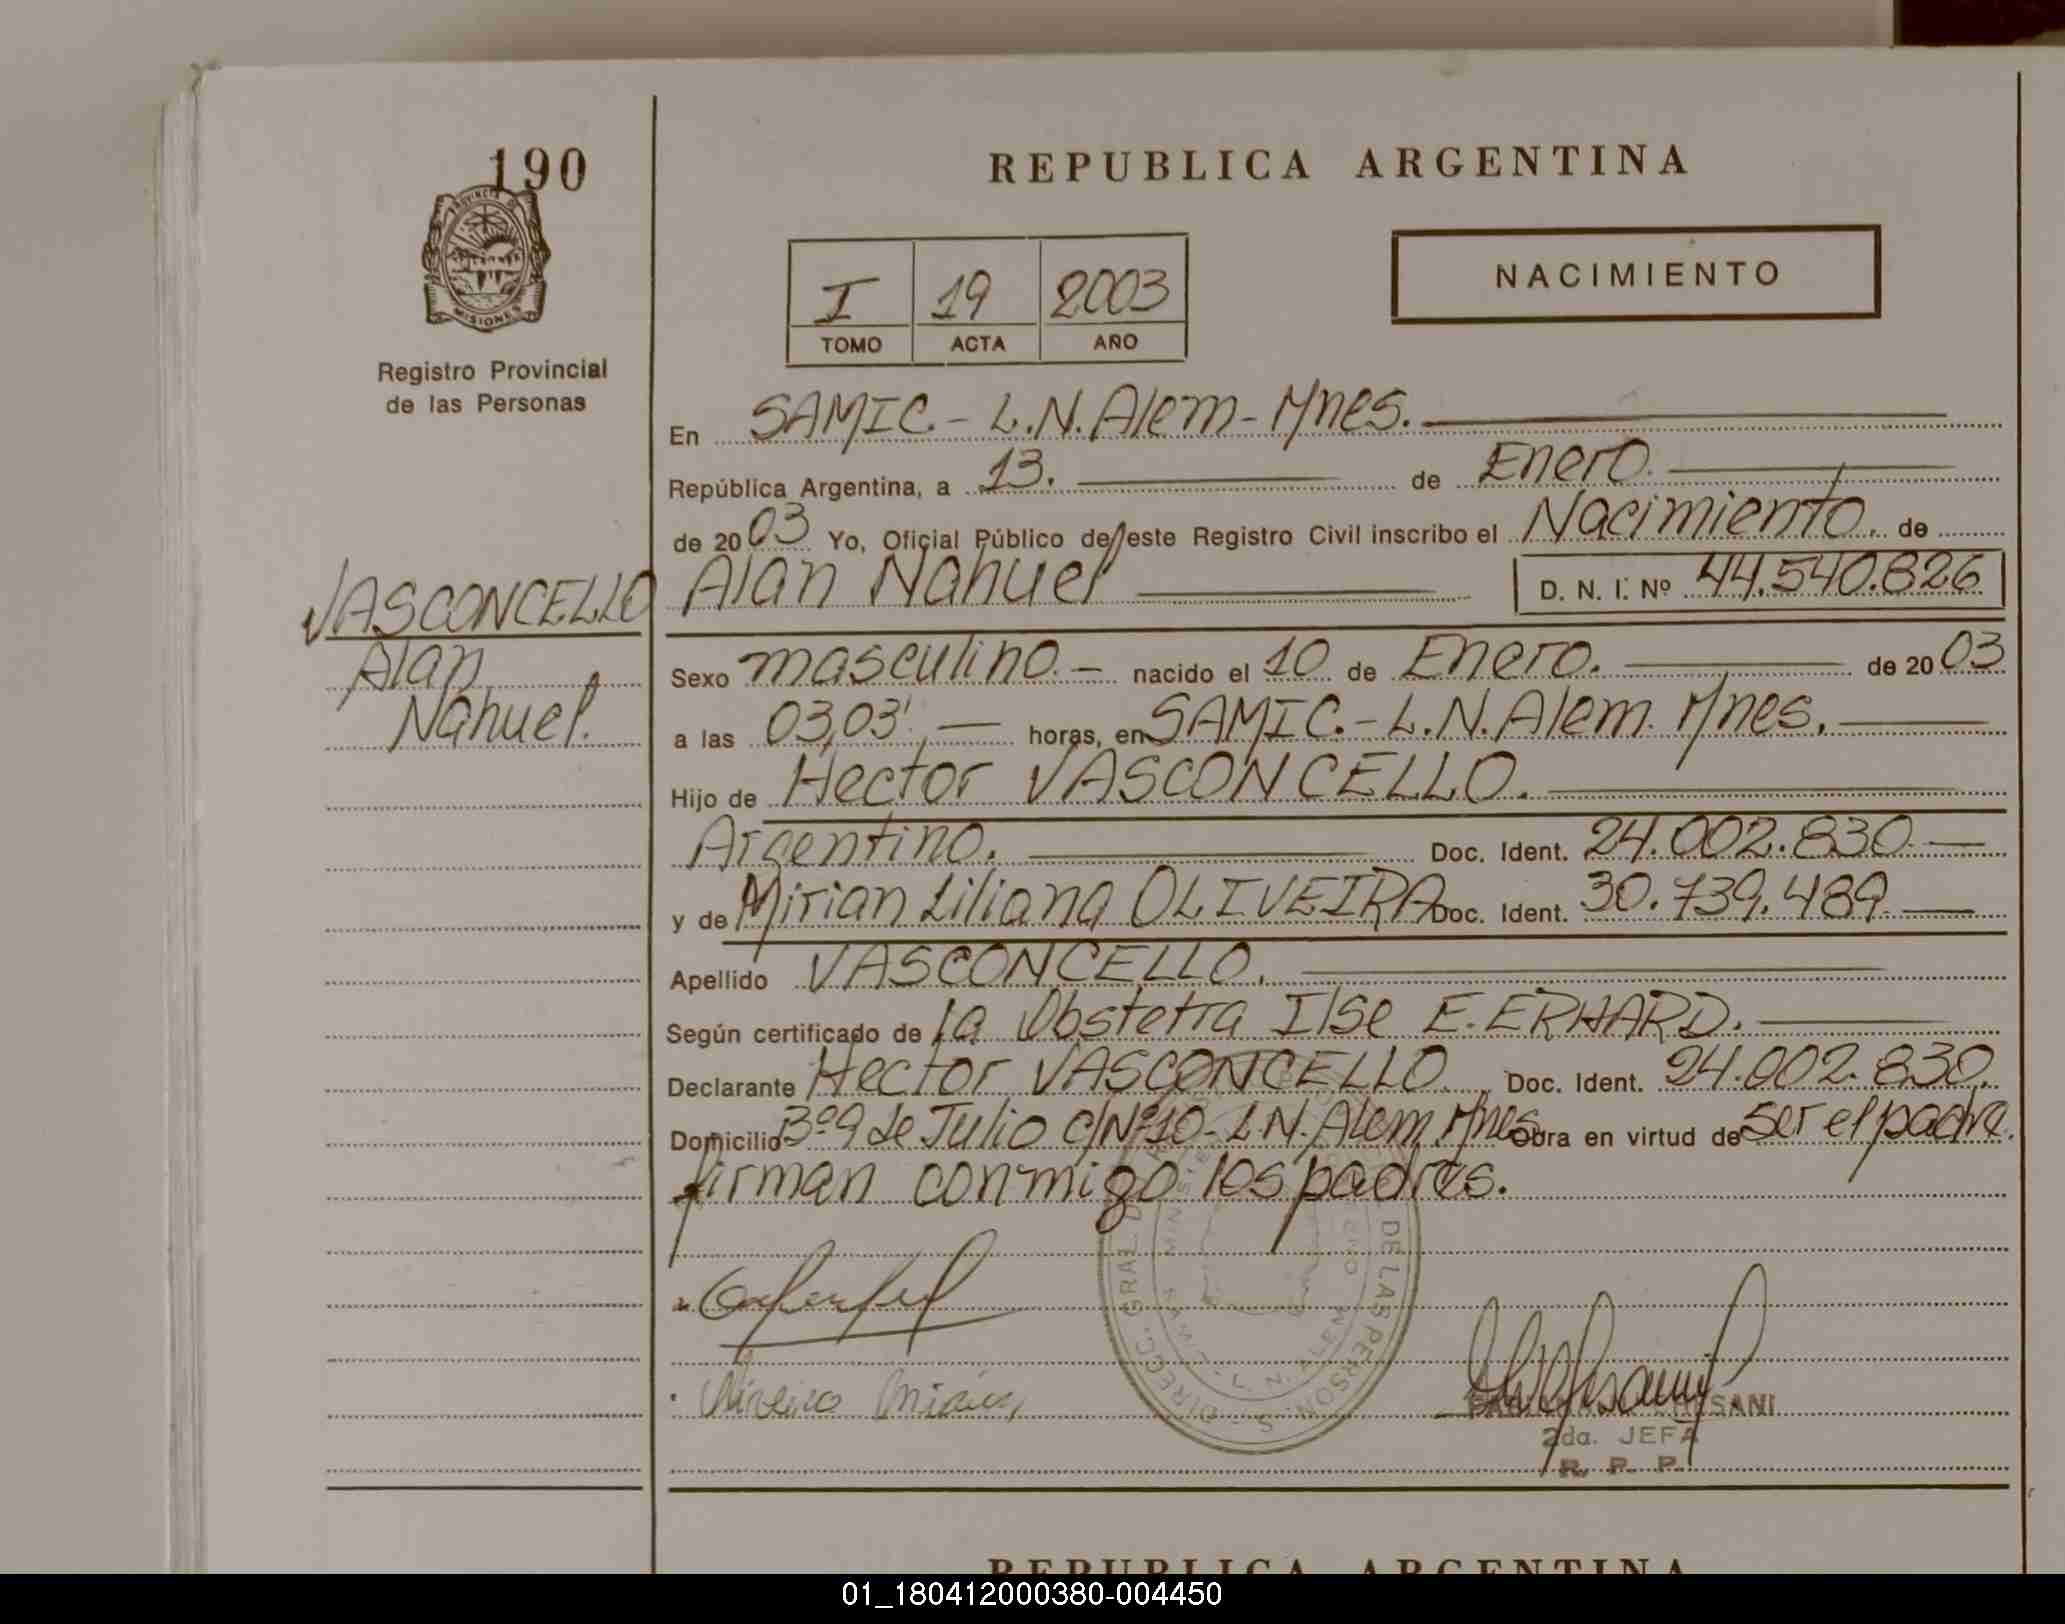 190
PROVINCIA DE
MISIONES
Registro Provincial
de las Personas
VASCONCELLO
Alan
Nahuel.
REPUBLICA ARGENTINA
I 19 2003
TOMO ACTA AÑO
NACIMIENTO
En SAMIC.- L.N.Alem- Mnes.
República Argentina, a 13. de Enero.
de 2003 Yo, Oficial Público de este Registro Civil inscribo el Nacimiento. de
Alan Nahuel D. N. I. Nº 44.540.826
Sexo masculino.- nacido el 10 de Enero. de 2003
a las 03,03'. horas, en SAMIC.- L.N.Alem. Mnes.
Hijo de Hector VASCONCELLO.
Argentino. Doc. Ident. 24.002.830.
y de Mirian Liliana OLIVEIRA Doc. Ident. 30.739.489.
Apellido VASCONCELLO.
Según certificado de la Obstetra Ilse E. ERHARD.
Declarante Hector VASCONCELLO. Doc. Ident. 24.002.830.
Domicilio Bº 9 de Julio C/Nº10- L.N.Alem Mnes. Obra en virtud de ser el padre.
firman conmigo los padres.
DIRECC. GRAL. DE LAS PERSONAS
L. N. ALEM
SANI
2da. JEFA
R. P. P.
REPUBLICA ARGENTINA
01_180412000380-004450